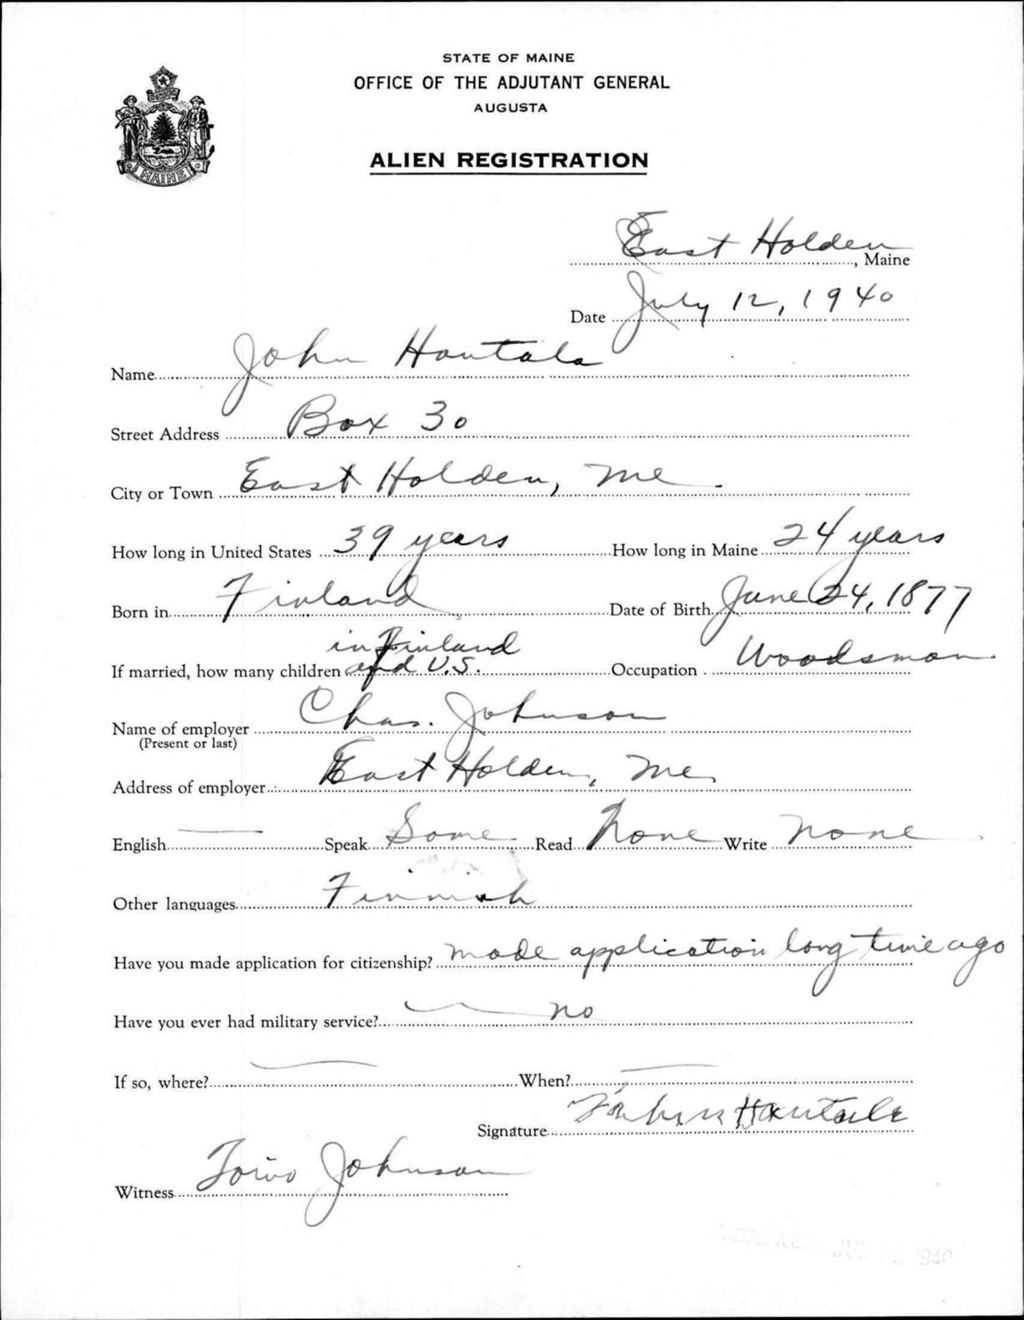 STATE OF MAINE
OFFICE OF THE ADJUTANT GENERAL
AUGUSTA
ALIEN REGISTRATION
MAINE
East Holden, Maine
Date July 12, 1940
Name John Hautala
Street Address Box 30
City or Town East Holden, Me.
How long in United States 39 years How long in Maine 24 years
Born in Finland Date of Birth June 24, 1877
in Finland
If married, how many children and U.S. Occupation Woodsman
Name of employer Chas. Johnson
(Present or last)
Address of employer East Holden, Me.
English — Speak Some Read None Write none
Other languages Finnish
Have you made application for citizenship? made application long time ago
Have you ever had military service? — no
If so, where? — When? —
Signature Hautala
Witness Toivo Johnson
1940